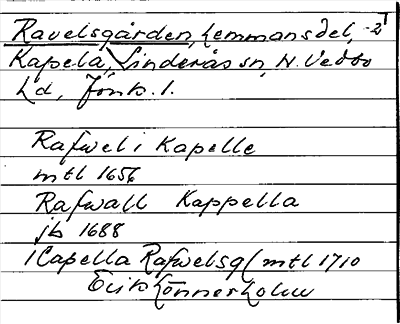 Ravelsgården, hemmansdel, -21
Kapela, Linderås sn, N. Vedbo
hd, Jönk. l.
Rafwel i Kapelle
mtl 1656
Rafwall Kappella
jb 1688
iCapella Rafwelsg( mtl 1710
Erik Lönnerholm